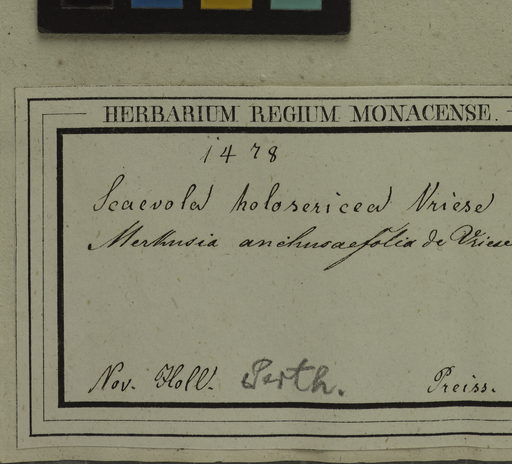 HERBARIUM REGIUM MONACENSE.
1478
Scaevola holosericea Vriese
Merkusia anchusaefolia de Vriese
Nov. Holl. Perth. Preiss.